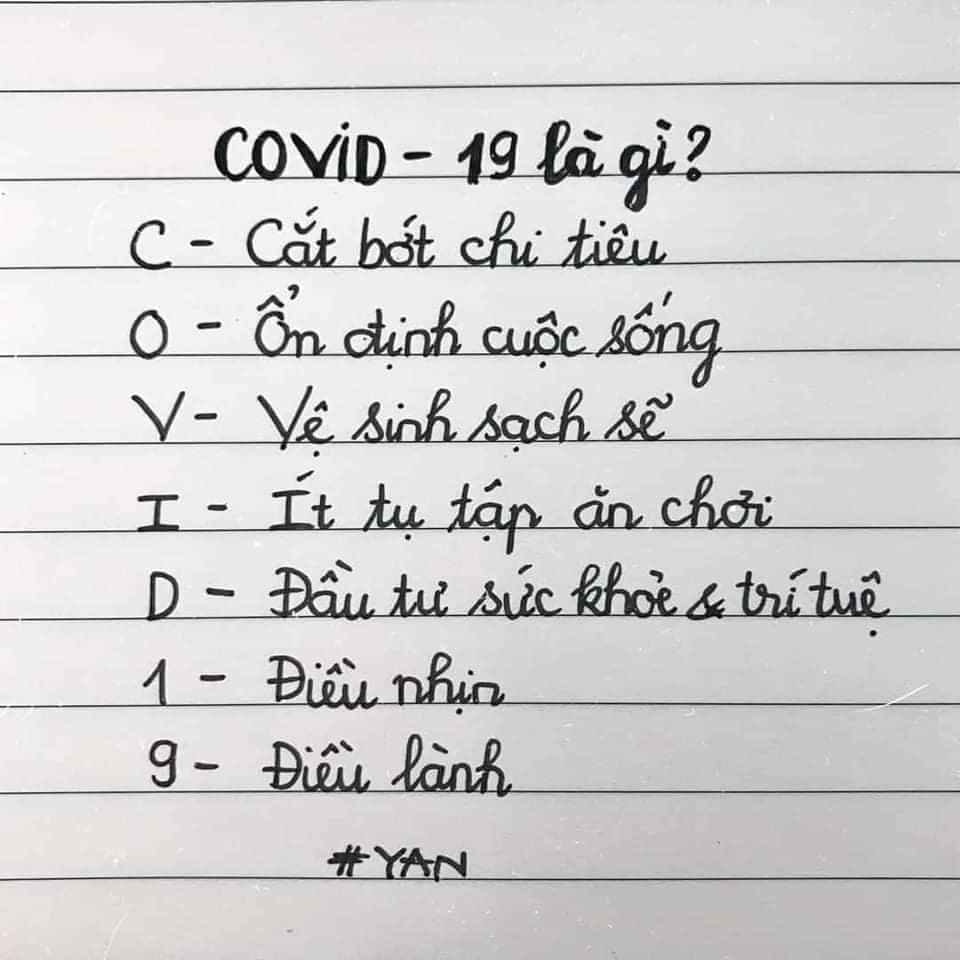 COVID - 19 là gì?
C - Cắt bớt chi tiêu
O - Ổn định cuộc sống
V - Vệ sinh sạch sẽ
I - Ít tụ tập ăn chơi
D - Đầu tư sức khoẻ & trí tuệ
1 - Điều nhịn
9 - Điều lành
#YAN